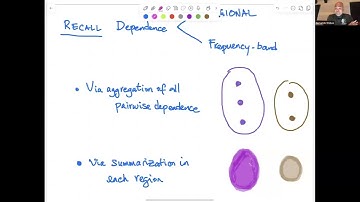 SIONAL
RECALL Dependence
Frequency-band
• Via aggregation of all
pairwise dependence
• Via summarization in
each region